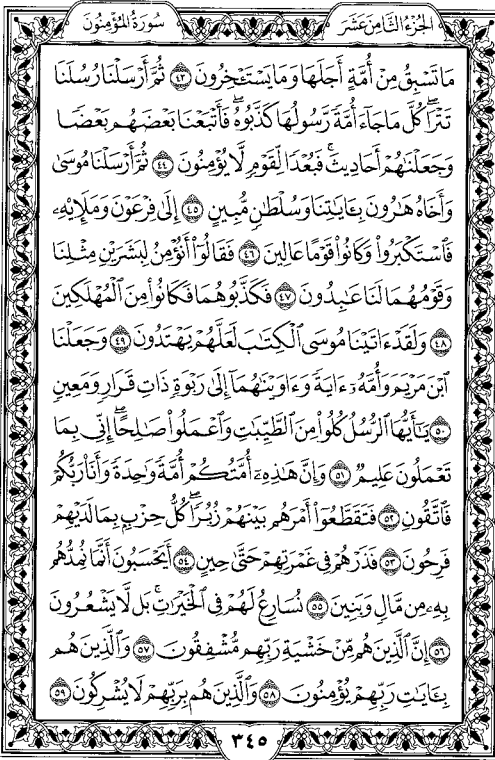 الجزء الثامن عشر
سورة المؤمنون
مَا تَسْبِقُ مِنْ أُمَّةٍ أَجَلَهَا وَمَا يَسْتَـْٔخِرُونَ ٤٣ ثُمَّ أَرْسَلْنَا رُسُلَنَا
تَتْرَا كُلَّ مَا جَآءَ أُمَّةً رَّسُولُهَا كَذَّبُوهُ فَأَتْبَعْنَا بَعْضَهُم بَعْضًا
وَجَعَلْنَٰهُمْ أَحَادِيثَ فَبُعْدًا لِّقَوْمٍ لَّا يُؤْمِنُونَ ٤٤ ثُمَّ أَرْسَلْنَا مُوسَىٰ
وَأَخَاهُ هَٰرُونَ بِـَٔايَٰتِنَا وَسُلْطَٰنٍ مُّبِينٍ ٤٥ إِلَىٰ فِرْعَوْنَ وَمَلَإِيْهِۦ
فَٱسْتَكْبَرُوا۟ وَكَانُوا۟ قَوْمًا عَالِينَ ٤٦ فَقَالُوٓا۟ أَنُؤْمِنُ لِبَشَرَيْنِ مِثْلِنَا
وَقَوْمُهُمَا لَنَا عَٰبِدُونَ ٤٧ فَكَذَّبُوهُمَا فَكَانُوا۟ مِنَ ٱلْمُهْلَكِينَ
٤٨ وَلَقَدْ ءَاتَيْنَا مُوسَى ٱلْكِتَٰبَ لَعَلَّهُمْ يَهْتَدُونَ ٤٩ وَجَعَلْنَا
ٱبْنَ مَرْيَمَ وَأُمَّهُۥٓ ءَايَةً وَءَاوَيْنَٰهُمَآ إِلَىٰ رَبْوَةٍ ذَاتِ قَرَارٍ وَمَعِينٍ
٥٠ يَٰٓأَيُّهَا ٱلرُّسُلُ كُلُوا۟ مِنَ ٱلطَّيِّبَٰتِ وَٱعْمَلُوا۟ صَٰلِحًا إِنِّى بِمَا
تَعْمَلُونَ عَلِيمٌ ٥١ وَإِنَّ هَٰذِهِۦٓ أُمَّتُكُمْ أُمَّةً وَٰحِدَةً وَأَنَا۠ رَبُّكُمْ
فَٱتَّقُونِ ٥٢ فَتَقَطَّعُوٓا۟ أَمْرَهُم بَيْنَهُمْ زُبُرًا كُلُّ حِزْبٍۭ بِمَا لَدَيْهِمْ
فَرِحُونَ ٥٣ فَذَرْهُمْ فِى غَمْرَتِهِمْ حَتَّىٰ حِينٍ ٥٤ أَيَحْسَبُونَ أَنَّمَا نُمِدُّهُم
بِهِۦ مِن مَّالٍ وَبَنِينَ ٥٥ نُسَارِعُ لَهُمْ فِى ٱلْخَيْرَٰتِ بَل لَّا يَشْعُرُونَ
٥٦ إِنَّ ٱلَّذِينَ هُم مِّنْ خَشْيَةِ رَبِّهِم مُّشْفِقُونَ ٥٧ وَٱلَّذِينَ هُم
بِـَٔايَٰتِ رَبِّهِمْ يُؤْمِنُونَ ٥٨ وَٱلَّذِينَ هُم بِرَبِّهِمْ لَا يُشْرِكُونَ ٥٩
٣٤٥